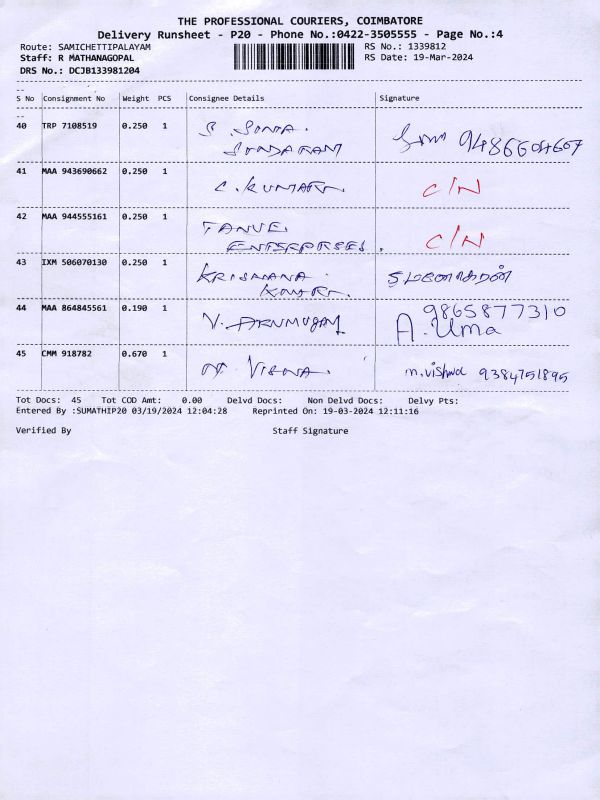 THE PROFESSIONAL COURIERS, COIMBATORE
Delivery Runsheet - P20 - Phone No.:0422-3505555 - Page No.:4
Route: SAMICHETTIPALAYAM RS No.: 1339812
Staff: R MATHANAGOPAL RS Date: 19-Mar-2024
DRS No.: DCJB133981204
S No Consignment No Weight PCS Consignee Details Signature
40 TRP 7108519 0.250 1 S. 
41 MAA 943690662 0.250 1 C. KUMAR. C/N
42 MAA 944555161 0.250 1 C/N
43 IXM 506070130 0.250 1 KRISHANA
44 MAA 864845561 0.190 1 V. ARUMUGAM 9865877310
A. Uma
45 CMM 918782 0.670 1 M. VISWA. m.vishwa 9384751895
Tot Docs: 45 Tot COD Amt: 0.00 Delvd Docs: Non Delvd Docs: Delvy Pts:
Entered By :SUMATHIP20 03/19/2024 12:04:28 Reprinted On: 19-03-2024 12:11:16
Verified By Staff Signature